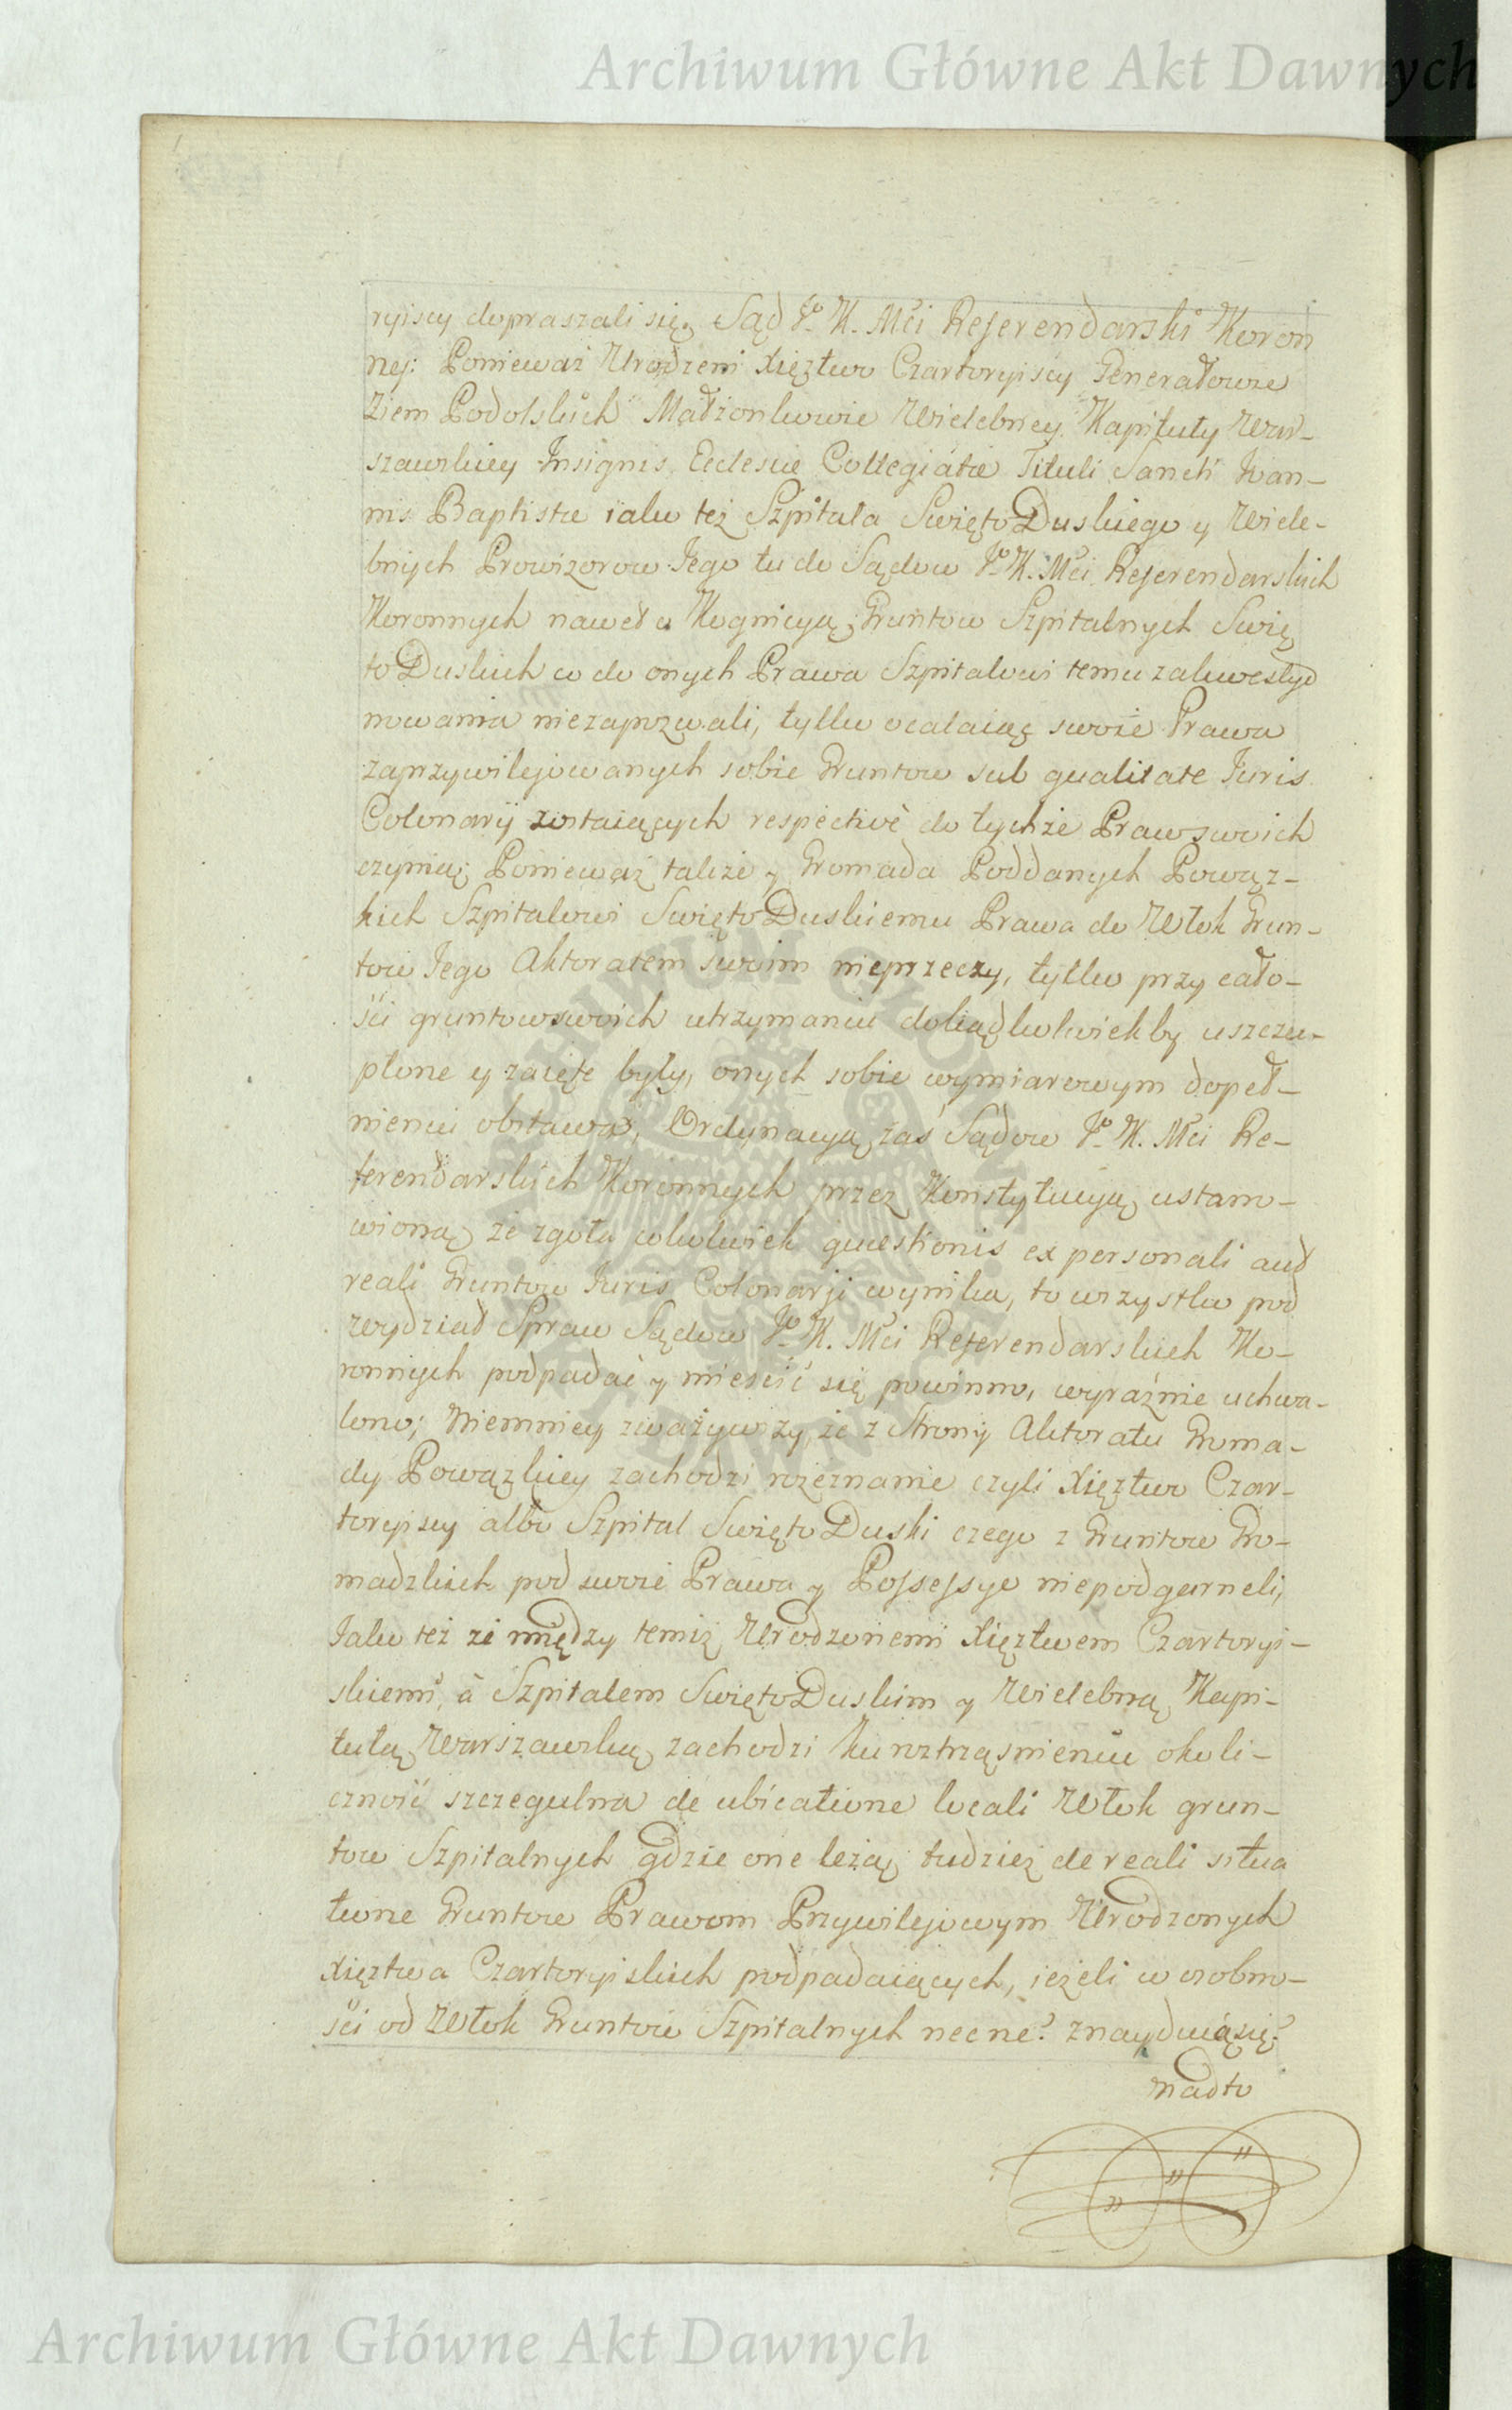 Archiwum Główne Akt Dawnych
ryiscy dopraszali się. Sąd J.o K. Mci Referendarski Koron
nej: Ponieważ Urodzeni Xięztwo Czartoryiscy Generałowie
Ziem Podolskich Małżonkowie Wielebney Kapituły War-
szawskiey Insignis Eclesiæ Collegiatæ Tituli Sancti Ioan-
nis Baptistæ iako też Szpitala Swięto Duskiego y Wiele-
bnych Prowizorow Jego tu do Sądow J.o K. Mci Referendarskich
Koronnych nawet o Kognicyą Gruntow Szpitalnych Swię
to Duskich co do onych Prawa Szpitalowi temu zakwestyo
nowania niezapozwali, tylko ocalaiąc swoie Prawa
zaprzywilejowanych sobie Gruntow sub qualitate Juris
Colonarij zostaiących respectivè do tychże Praw swoich
czynią; Ponieważ także y Gromada Poddanych Powąz-
kich Szpitalowi Swięto Duskiemu Prawa do Włok Grun-
tow Jego Aktoratem swoim nieprzeczy, tylko przy cało-
ści gruntow swoich utrzymaniu dokądkolwiekby uszczu-
plone y zaięte były, onych sobie wymiarowym dopeł-
nieniu obstawa, Ordynacyą zaś Sądow J.o K. Mci Re-
ferendarskich Koronnych przez Konstytucyą ustano-
wioną że zgoła cokolwiek quæstionis ex personali aut
reali Gruntow Juris Colonarji wynika, to wszystko pod
wydział Spraw Sądow J.o K. Mci Referendarskich Ko-
ronnych podpadać y mieścić się powinno, wyraźnie uchwa-
lono; Niemniey zważywszy, że z Strony Aktoratu Groma-
dy Powązkiey zachodzi rozeznanie czyli Xięztwo Czar-
toryiscy albo Szpital Swięto Duski czego z Gruntow Gro-
madzkich pod swoie Prawa y Possessye niepodgarneli,
Jako też że między temiż Urodzonemi Xięztwem Czartoryi-
skiemi, à Szpitalem Swięto Duskim y Wielebną Kapi-
tułą Warszawską zachodzi ku roztrząsnieniu okoli-
czność szczegulna de ubicatione locali Włok grun-
tow Szpitalnych gdzie one leżą, tudzież de reali situa
tione Gruntow Prawom Przywilejowym Urodzonych
Xięztwa Czartoryiskich podpadaiących, ieżeli w osobno-
ści od Włok Gruntow Szpitalnych necne? znayduią się?
nadto
Archiwum Główne Akt Dawnych